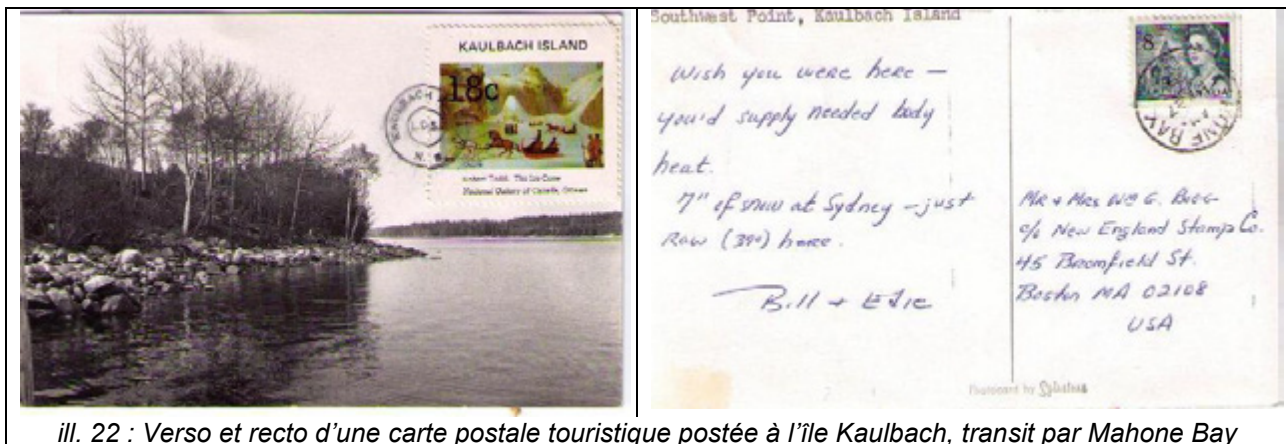 KAULBACH ISLAND
18c
National Gallery of Canada, Ottawa
Southwest Point, Kaulbach Island
Wish you were here —
you'd supply needed body
heat.
7" of snow at Sydney – just
Raw (39°) here.
Bill +
8
Mr + Mrs Wm G.
c/o New England Stamp Co.
45 Bromfield St.
Boston MA 02108
USA
ill. 22 : Verso et recto d'une carte postale touristique postée à l'île Kaulbach, transit par Mahone Bay